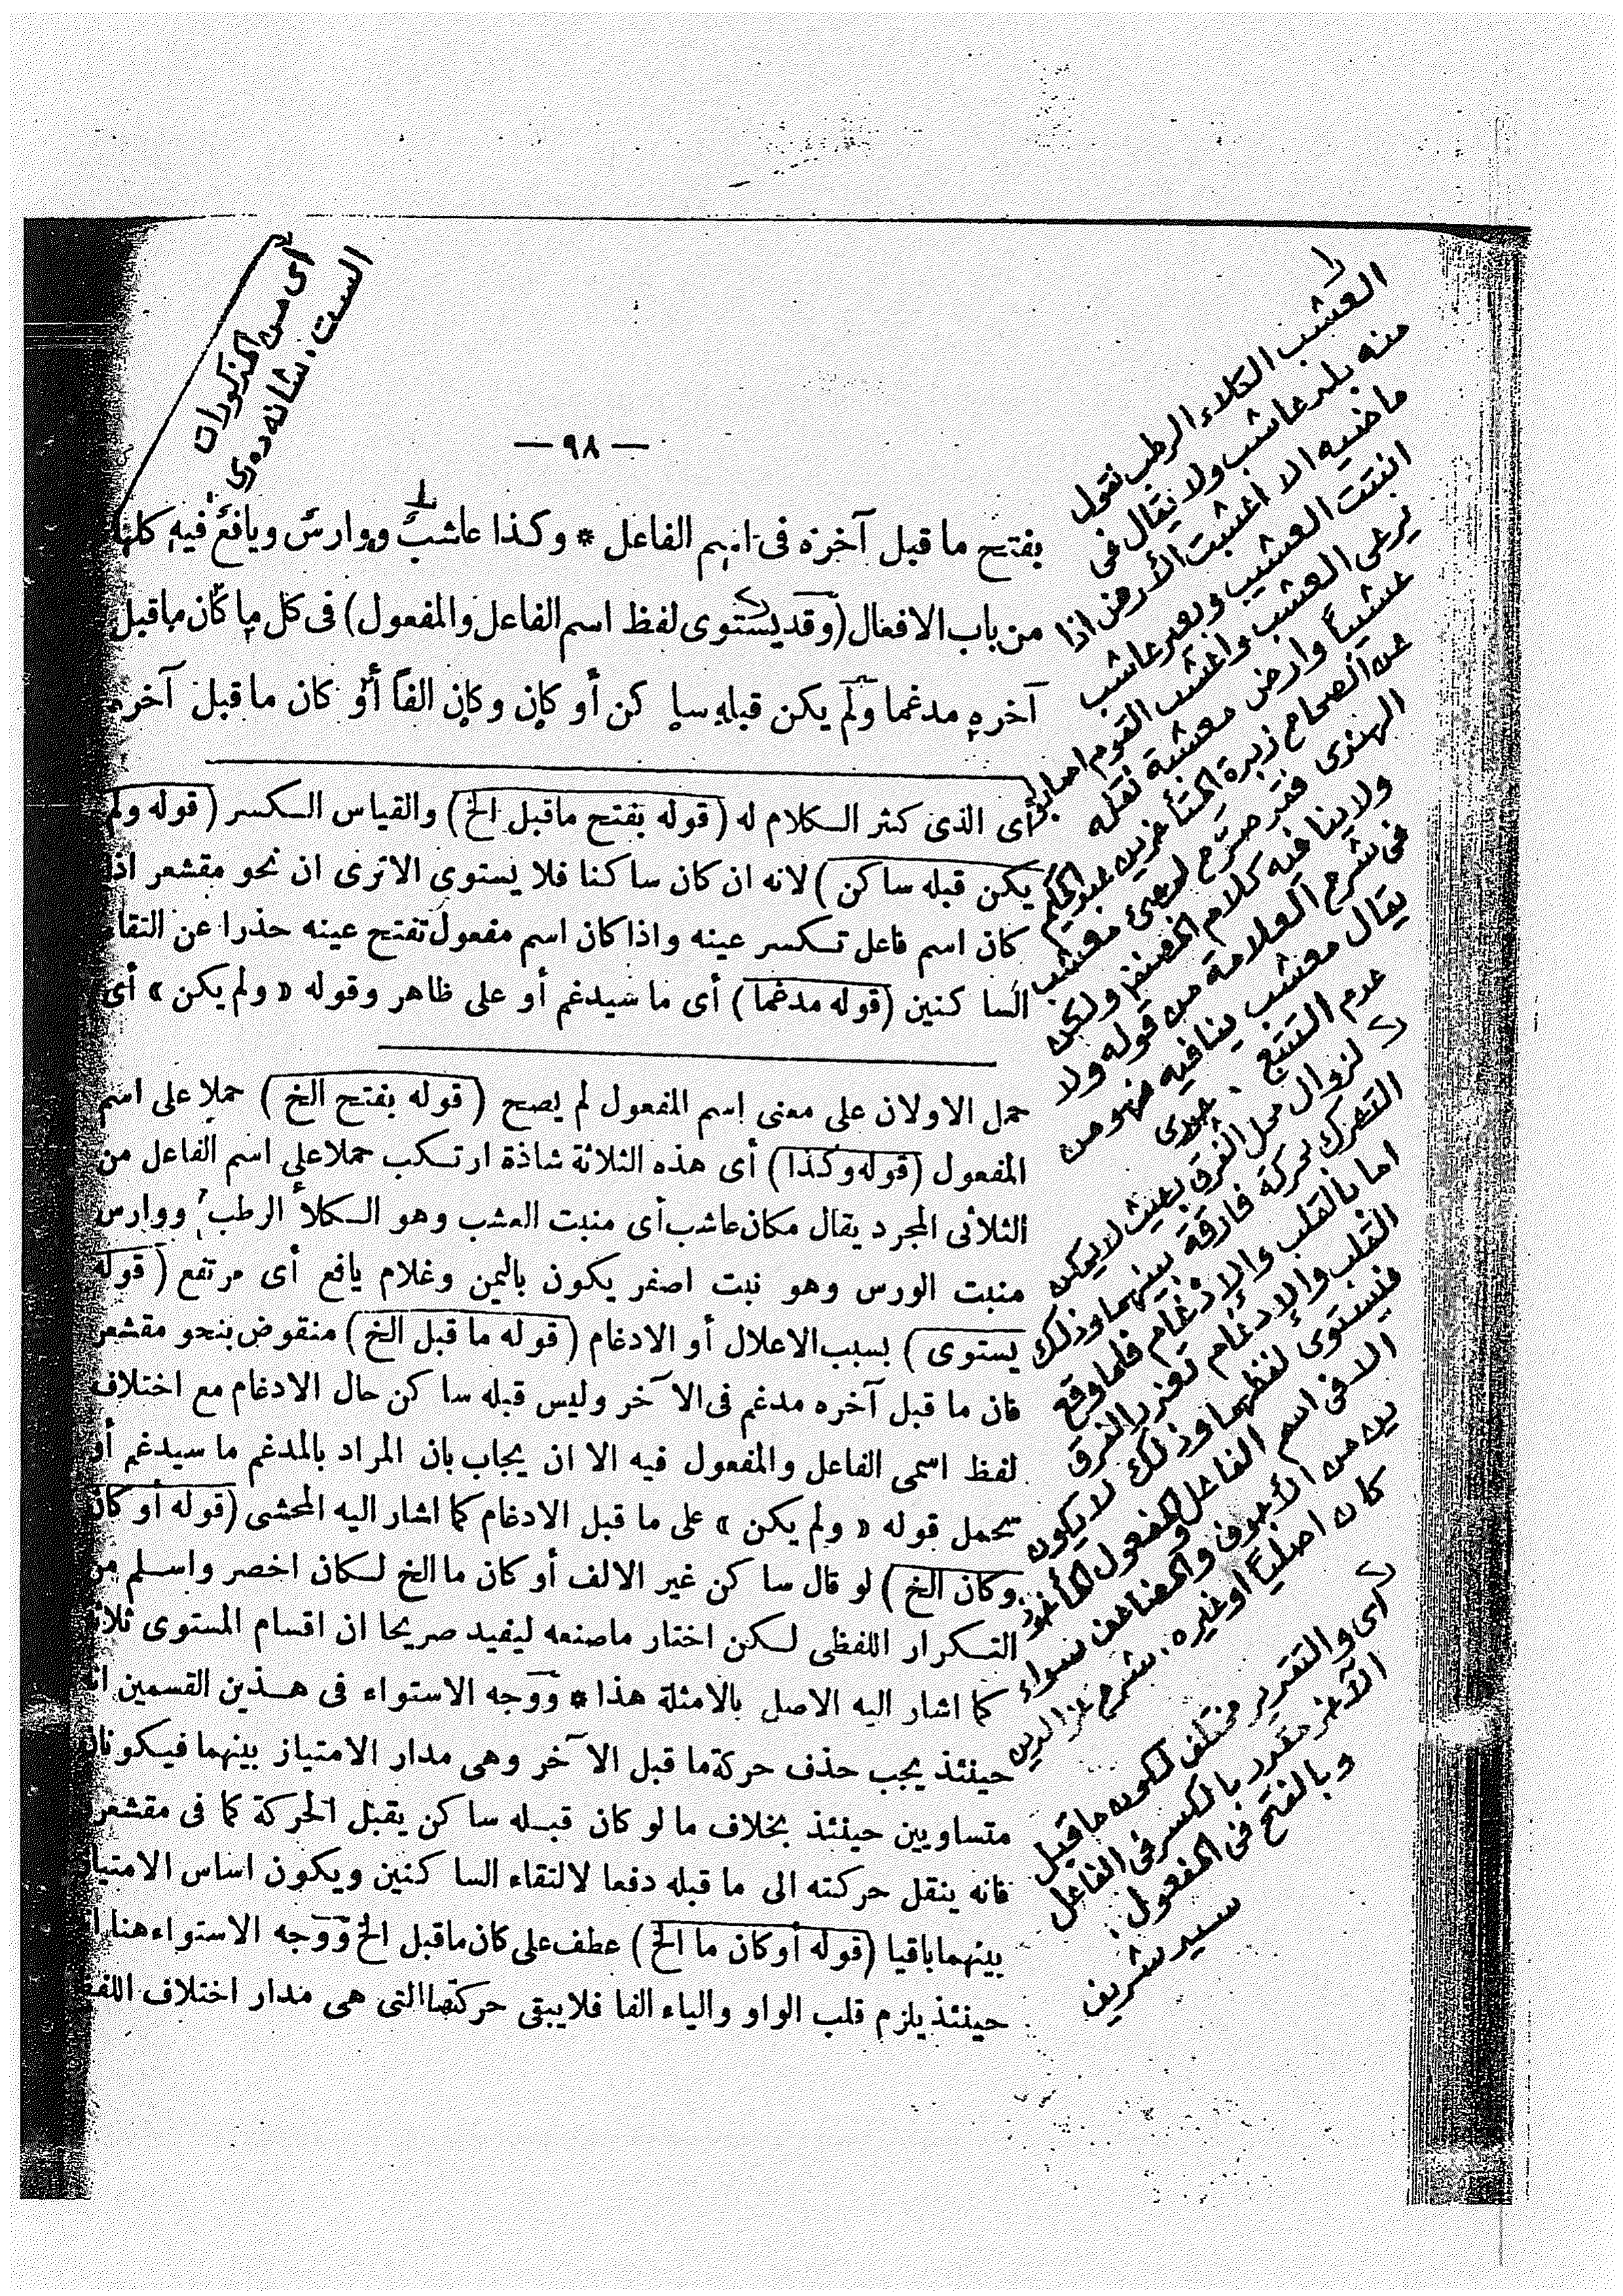 — ٩٨ —
بفتح ما قبل آخره فى اسم الفاعل * وكذا عاشب ووارس ويافع فيه كلها
من باب الافعال (وقد يستوى لفظ اسم الفاعل والمفعول) فى كل ما كان ماقبل
آخره مدغما ولم يكن قبله سا كن أو كان وكان الفا أو كان ما قبل آخره
أى الذى كثر الكلام له (قوله بفتح ماقبل الخ) والقياس الكسر (قوله ولم
يكن قبله ساكن) لانه ان كان ساكنا فلا يستوى الاترى ان نحو مقشعر اذا
كان اسم فاعل تكسر عينه واذا كان اسم مفعول تفتح عينه حذرا عن التقاء
السا كنين (قوله مدغما) أى ما سيدغم أو على ظاهر وقوله « ولم يكن » أى
حمل الاولان على معنى اسم المفعول لم يصح (قوله بفتح الخ) حملا على اسم
المفعول (قوله وكذا) أى هذه الثلاثة شاذة ارتكب حملا على اسم الفاعل من
الثلاثى المجرد يقال مكان عاشب أى منبت العشب وهو الكلأ الرطب ووارس
منبت الورس وهو نبت اصفر يكون باليمن وغلام يافع أى مرتفع (قوله
يستوى) بسبب الاعلال أو الادغام (قوله ما قبل الخ) منقوض بنحو مقشعر
فان ما قبل آخره مدغم فى الآخر وليس قبله سا كن حال الادغام مع اختلاف
لفظ اسمى الفاعل والمفعول فيه الا ان يجاب بان المراد بالمدغم ما سيدغم أو
يحمل قوله « ولم يكن » على ما قبل الادغام كما اشار اليه المحشى (قوله أو كان
وكان الخ) لو قال سا كن غير الالف أو كان ما الخ لكان اخصر واسلم من
التكرار اللفظى لكن اختار ماصنعه ليفيد صريحا ان اقسام المستوى ثلاثة
كما اشار اليه الاصل بالامثلة هذا * ووجه الاستواء فى هذين القسمين انه
حينئذ يجب حذف حركة ما قبل الآخر وهى مدار الامتياز بينهما فيكونان
متساويين حينئذ بخلاف ما لو كان قبله سا كن يقبل الحركة كما فى مقشعر
فانه ينقل حركته الى ما قبله دفعا لالتقاء السا كنين ويكون اساس الامتياز
بينهما باقيا (قوله أو كان ما الخ) عطف على كان ماقبل الخ ووجه الاستواء هنا
حينئذ يلزم قلب الواو والياء الفا فلا يبقى حركتها التى هى مدار اختلاف اللفظ
أى من المذكورات
الست.
العشب الكلاء الرطب تقول
منه بلد عاشب ولا يقال فى
ماضيه الا اعشبت الأرض اذا
انبتت العشب وبعير عاشب
يرعى العشب واعشب القوم اصابوا
عشبًا وارض معشبة نقله
عن الصحاح زبدة المتأخرين عبد الحكيم
الهندى فقد صرّح لمجئ معشب
ولا ينافيه كلام المصنف ولكن
فى شرح العلامة من قوله ولا
يقال معشب ينافيه
عدم التتبع.
لزوال محل الفرق بحيث لا يمكن
التحرك بحركة فارقة بينهما وذلك
اما بالقلب والإدغام فلما وقع
القلب والإدغام تعذر الفرق
فيستوى لفظهما وذلك لا يكون
الا فى اسم الفاعل والمفعول المأخوذ
ين من الأجوف والمضاعف سواء
كان اصليًا او غيره. شرح عز الدين
أى والتقدير مختلف لكون ما قبل
الآخر مقدر بالكسر فى الفاعل
وبالفتح فى المفعول.
سيد شريف